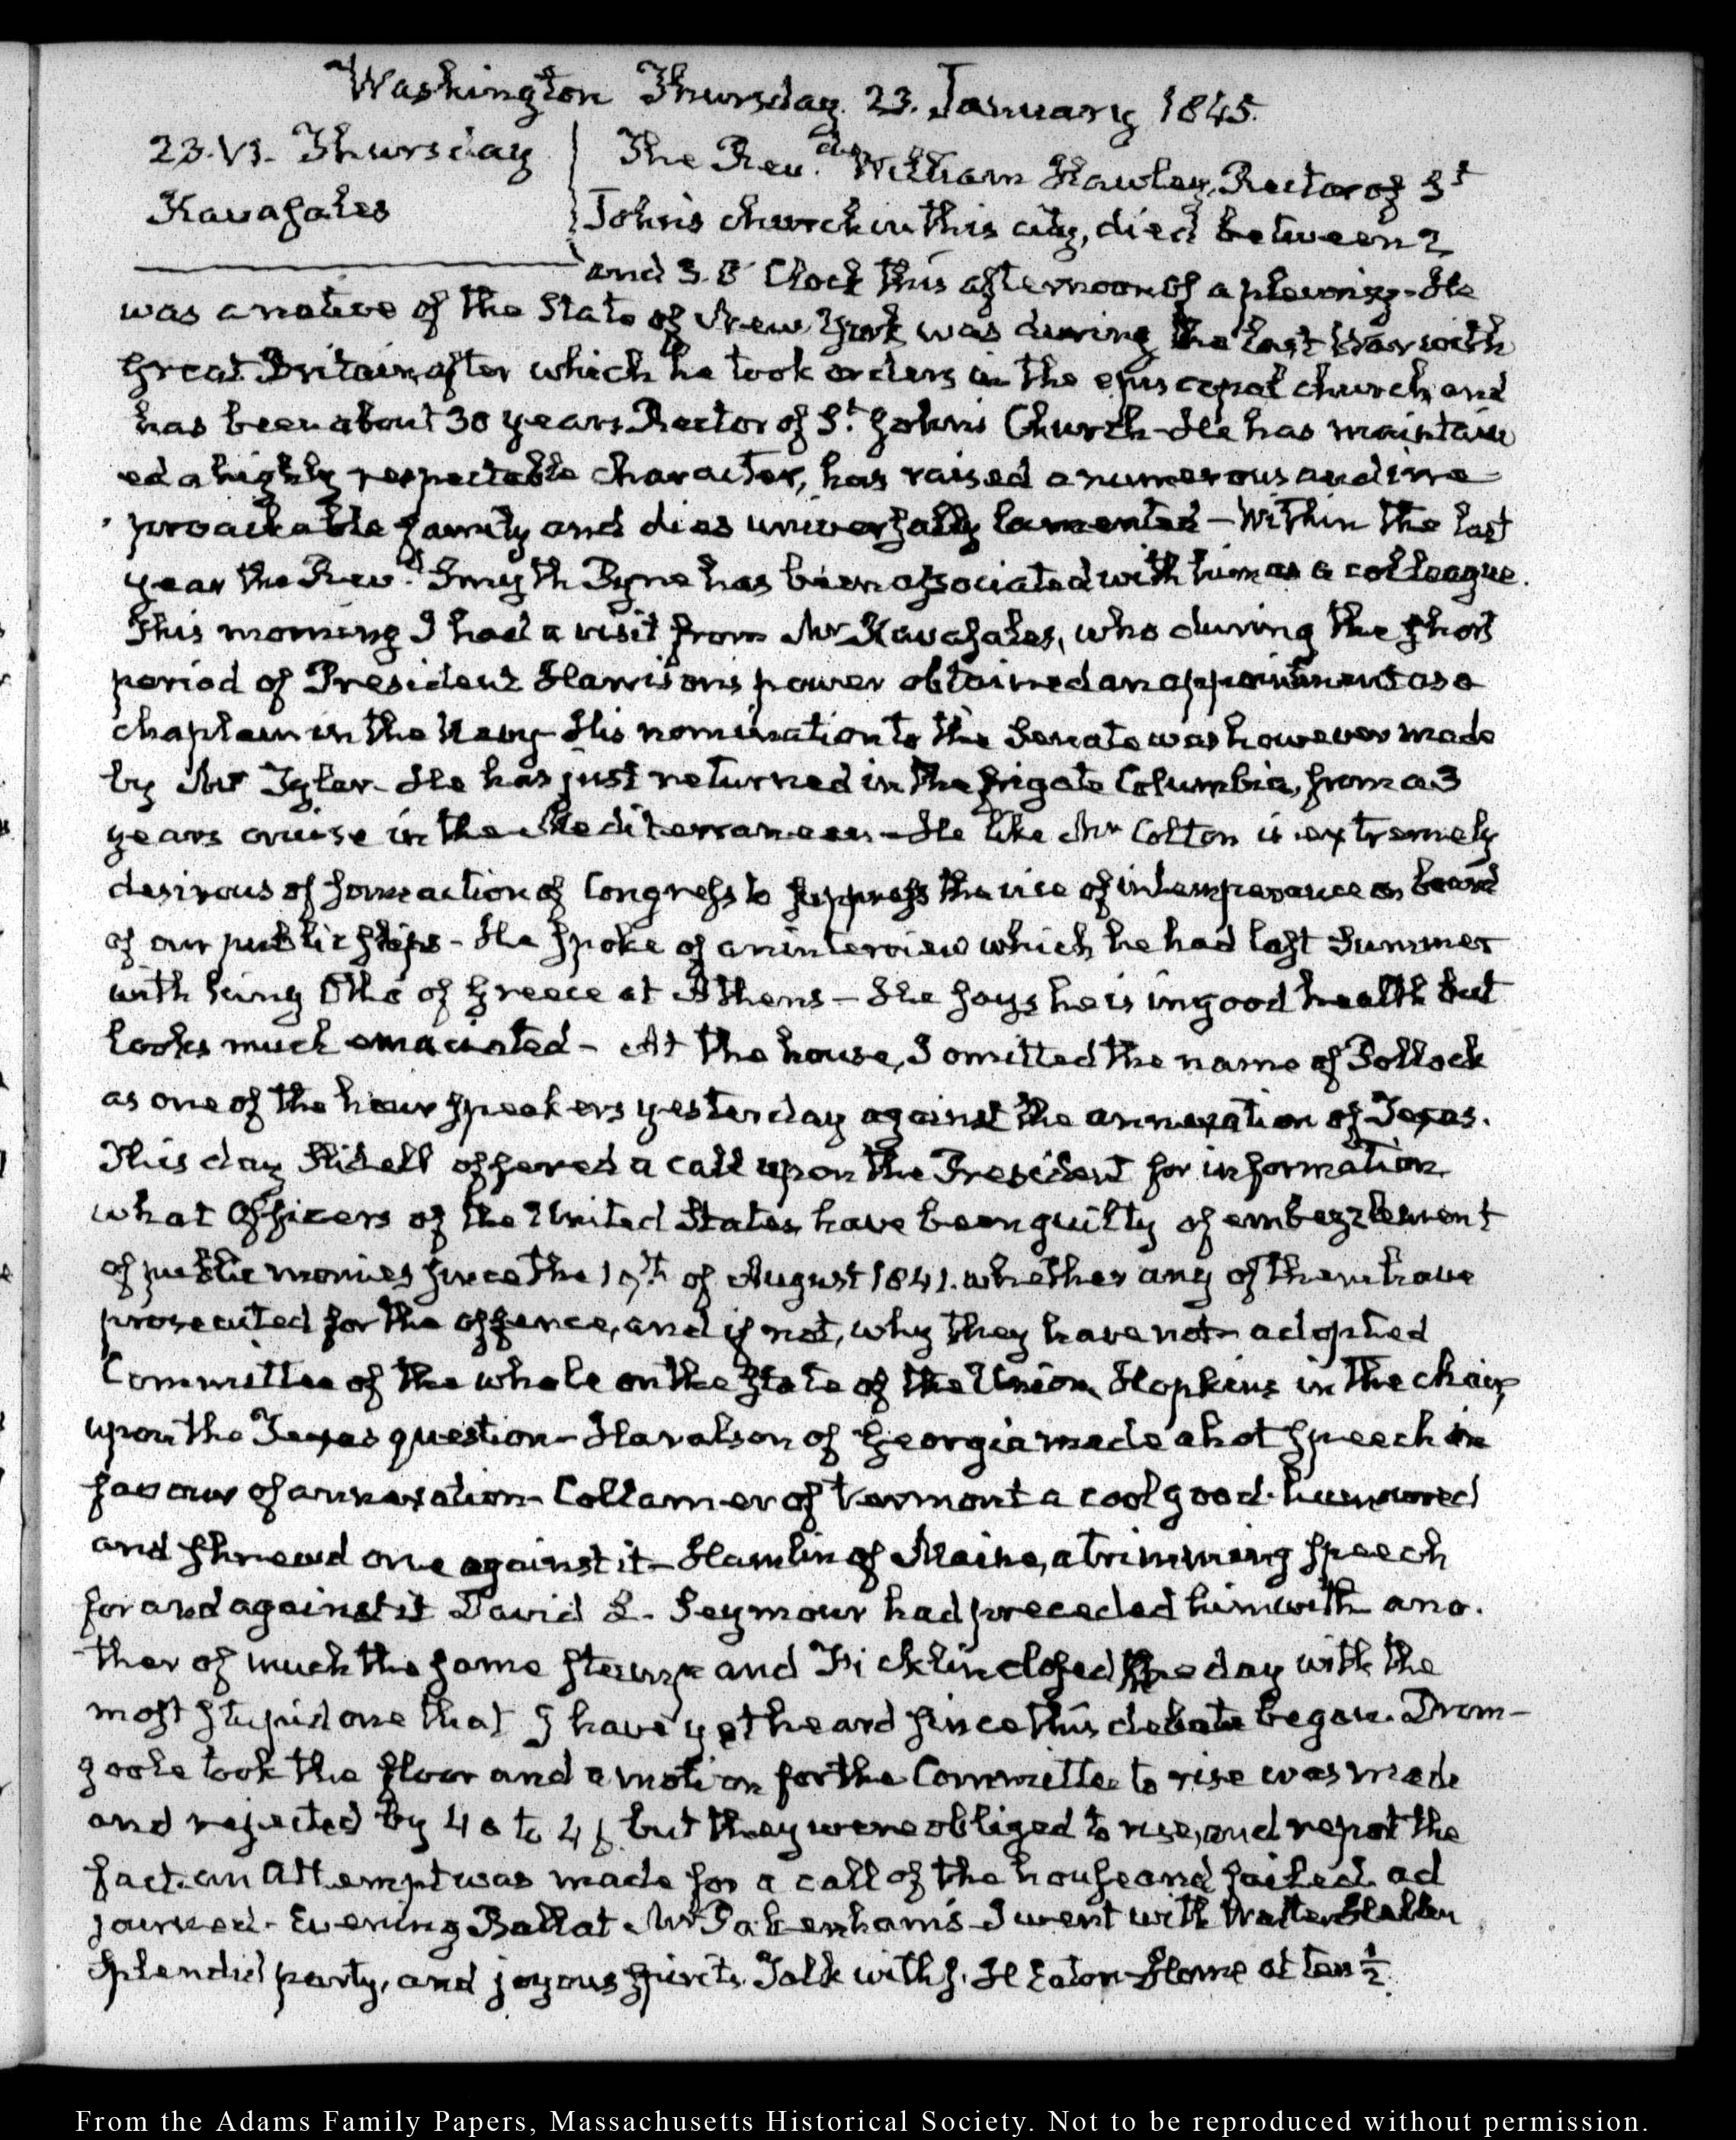 Washington Thursday 23. January 1845.
23. VI. Thursday
Kavasales
The Revd. William Hawley, Rector of St
John's church in this city, died between 2
and 3. O'Clock this afternoon of a pleurisy - He
was a native of the State of New York was during the last War with
Great Britain, after which he took orders in the episcopal church, and
has been about 30 years Rector of St. John's Church - He has maintain
ed a highly respectable character, has raised a numerous and irre
proachable family and dies universally lamented - Within the last
year the Revd. Smyth Pyne has been associated with him as a colleague.
This morning I had a visit from Mr Kavasales, who during the short
period of President Harrison's power obtained an appointment as a
chaplain in the Navy - His nomination to the Senate was however made
by Mr Tyler - He has just returned in the frigate Columbia, from a 3
years cruise in the Mediterranean - He like Mr Colton is extremely
desirous of some action of Congress to suppress the vice of intemperance on board
of our public ships - He spoke of an interview which he had last Summer
with king Otho of Greece at Athens - He says he is in good health but
looks much emaciated - At the house, I omitted the name of Pollock
as one of the hour speakers yesterday against the annexation of Texas.
This day Slidell offered a call upon the President for information
what Officers of the United States have been guilty of embezzlement
of public monies since the of August 1841. whether any of them have
prosecuted for the offence, and if not, why they have not - adopted
Committee of the whole on the State of the Union, Hopkins in the chair,
upon the Texas question - Haralson of Georgia made a hot speech in
favour of annexation - Collamer of Vermont a cool good-humoured
and shrewd one against it - Hamlin of Maine, a trimming speech
for and against it David L. Seymour had preceded him with ano.
ther of much the same stamp and Ficklin closed the day with the
most stupid one that I have yet heard since this debate began. Drom-
goole took the floor and a motion for the Committee to rise was made
and rejected by to but they were obliged to rise, and report the
fact. an attempt was made for a call of the house and failed. ad
journed - Evening Ball at Mr Pakenham's - I went with Walter Hellen
splendid party, and joyous spirits. Talk with J. H Eaton - Home at ten ½.
From the Adams Family Papers, Massachusetts Historical Society. Not to be reproduced without permission.